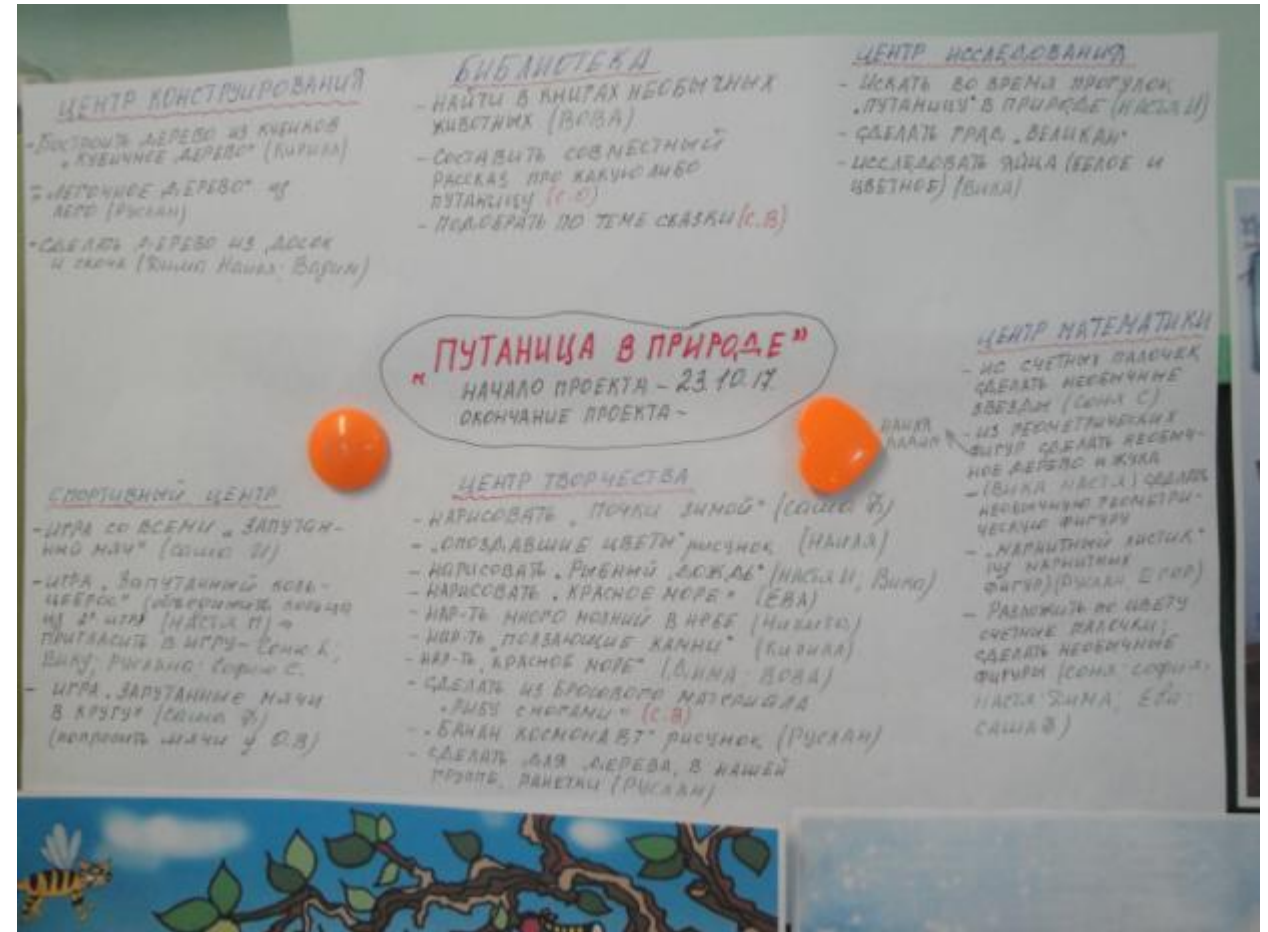 ЦЕНТР КОНСТРУИРОВАНИЯ
- ПОСТРОИТЬ ДЕРЕВО ИЗ КУБИКОВ
"КУБИЧНОЕ ДЕРЕВО" (КИРИЛЛ)
- "ЛЕГОЧНОЕ ДЕРЕВО" ИЗ
ЛЕГО (РУСЛАН)
- СДЕЛАТЬ ДЕРЕВО ИЗ ДОСОК
И СКОЧА (Дима Наиля; Вадим)
БИБЛИОТЕКА
- НАЙТИ В КНИГАХ НЕОБЫЧНЫХ
ЖИВОТНЫХ (ВОВА)
- СОСТАВИТЬ СОВМЕСТНЫЙ
РАССКАЗ ПРО КАКУЮ ЛИБО
ПУТАНИЦУ (С.О)
- ПОДОБРАТЬ ПО ТЕМЕ СКАЗКИ (С.В)
ЦЕНТР ИССЛЕДОВАНИЯ
- ИСКАТЬ ВО ВРЕМЯ ПРОГУЛОК
"ПУТАНИЦУ" В ПРИРОДЕ (НАСТЯ И)
- СДЕЛАТЬ ГРАД "ВЕЛИКАН"
- ИССЛЕДОВАТЬ ЯЙЦА (БЕЛОЕ И
ЦВЕТНОЕ) (ВИКА)
"ПУТАНИЦА В ПРИРОДЕ"
НАЧАЛО ПРОЕКТА - 23.10.17.
ОКОНЧАНИЕ ПРОЕКТА -
ЦЕНТР МАТЕМАТИКИ
- ИС СЧЕТНЫХ ПАЛОЧЕК
СДЕЛАТЬ НЕОБЫЧНЫЕ
ЗВЕЗДЫ (СОНЯ С)
- ИЗ ГЕОМЕТРИЧЕСКИХ
ФИГУР СДЕЛАТЬ НЕОБЫЧ-
НОЕ ДЕРЕВО И ЖУКА
- (ВИКА НАСТЯ) СДЕЛАТЬ
НЕОБЫЧНУЮ ГЕОМЕТРИ-
ЧЕСКУЮ ФИГУРУ
- "МАГНИТНЫЙ ЛИСТИК"
ИЗ МАГНИТНЫХ
ФИГУР) (РУСЛАН ЕГОР)
- РАЗЛОЖИТЬ ПО ЦВЕТУ
СЧЕТНЫЕ ПАЛОЧКИ;
СДЕЛАТЬ НЕОБЫЧНЫЕ
ФИГУРЫ (СОНЯ; СОФИЯ;
НАСТЯ; ДИМА; Ева;
САША Ф)
СПОРТИВНЫЙ ЦЕНТР
- ИГРА СО ВСЕМИ "ЗАПУТАН-
НЫЙ МЯЧ" (САША И)
- ИГРА "ЗАПУТАННЫЙ КОЛЬ-
ЦЕБРОС" (объединить кольца
из 2х игр) (НАСТЯ П)
ПРИГЛАСИТЬ В ИГРУ - Соню К;
Вику; Руслана; Софию С.
- ИГРА "ЗАПУТАННЫЕ МЯЧИ
В КРУГУ" (САША Ф)
(попросить мячи у О.В)
ЦЕНТР ТВОРЧЕСТВА
- НАРИСОВАТЬ "ПОЧКИ ЗИМОЙ" (САША Ф)
- "ОПОЗДАВШИЕ ЦВЕТЫ" рисунок (НАИЛЯ)
- НАРИСОВАТЬ "РЫБНЫЙ ДОЖДЬ" (НАСТЯ И, Вика)
- НАРИСОВАТЬ "КРАСНОЕ МОРЕ" (ЕВА)
- НАР-ТЬ МНОГО МОЛНИЙ В НЕБЕ
- НАР-ТЬ "ПОЛЗАЮЩИЕ КАМНИ" (КИРИЛЛ)
- НАР-ТЬ "КРАСНОЕ МОРЕ" (ДИМА; ВОВА)
- СДЕЛАТЬ ИЗ БРОСОВОГО МАТЕРИАЛА
"РЫБУ С НОГАМИ" (С.В)
- "БАНАН КОСМОНАВТ" рисунок (РУСЛАН)
- СДЕЛАТЬ ДЛЯ ДЕРЕВА, В НАШЕЙ
ГРУППЕ, РАНЕТКИ (РУСЛАН)